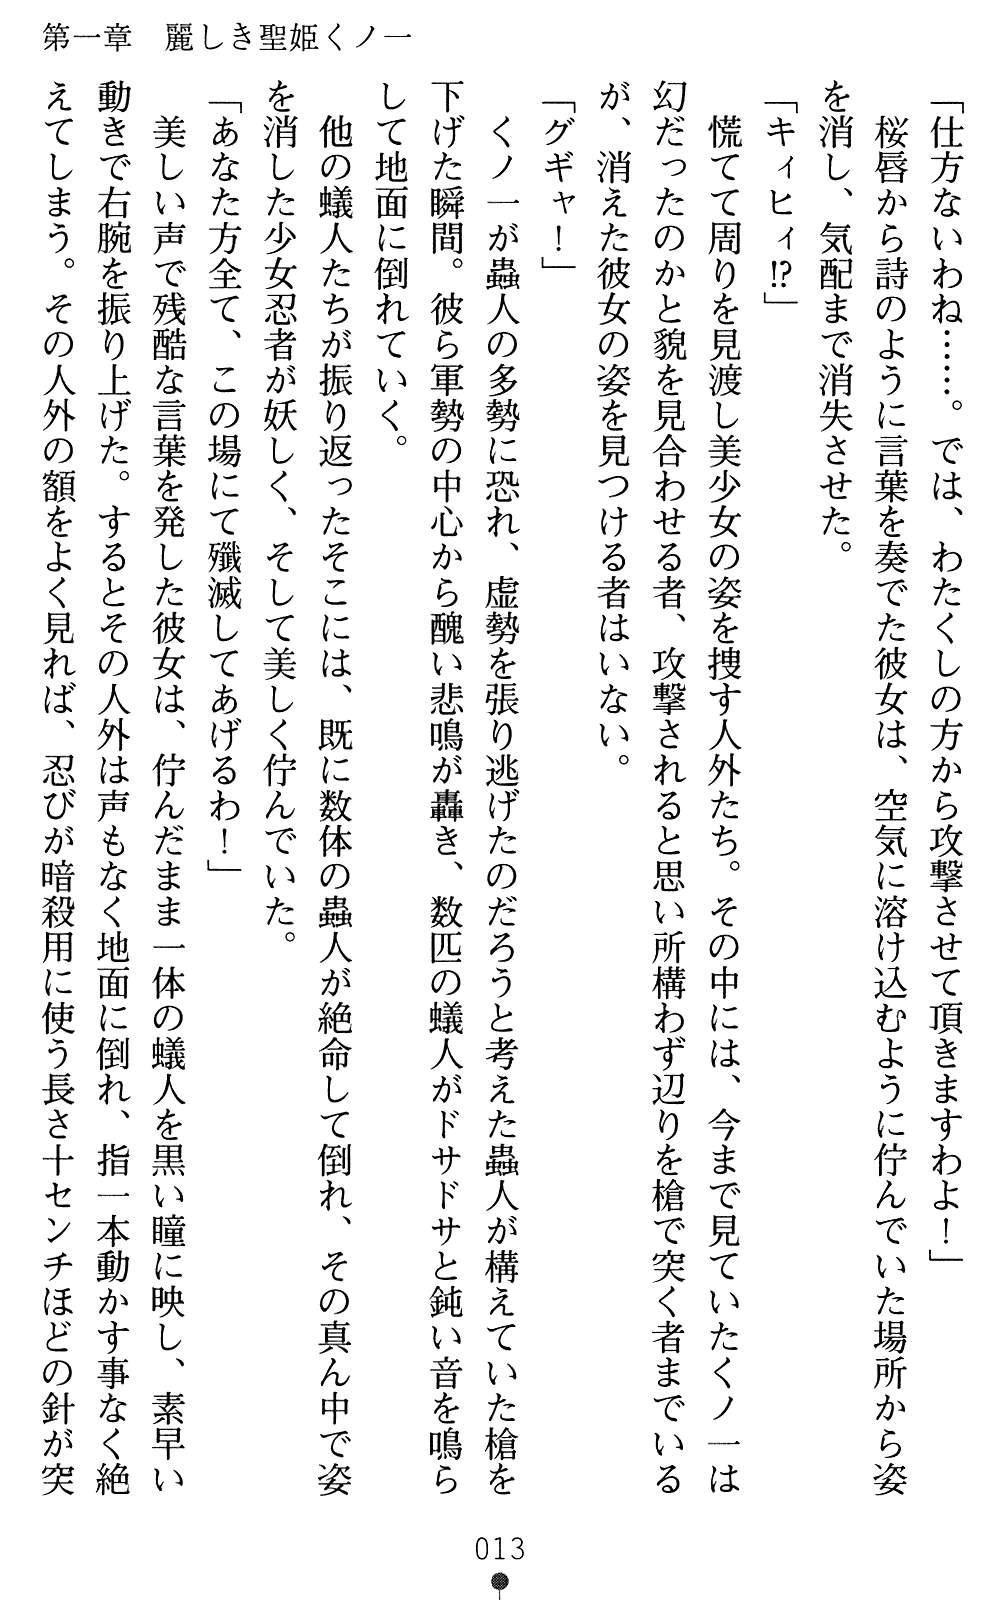 第一章　麗しき聖姫くノ一
「仕方ないわね……。では、わたくしの方から攻撃させて頂きますわよ！」
　桜唇から詩のように言葉を奏でた彼女は、空気に溶け込むように佇んでいた場所から姿
を消し、気配まで消失させた。
「キィヒィ!?」
　慌てて周りを見渡し美少女の姿を捜す人外たち。その中には、今まで見ていたくノ一は
幻だったのかと貌を見合わせる者、攻撃されると思い所構わず辺りを槍で突く者までいる
が、消えた彼女の姿を見つける者はいない。
「グギャ！」
　くノ一が蟲人の多勢に恐れ、虚勢を張り逃げたのだろうと考えた蟲人が構えていた槍を
下げた瞬間。彼ら軍勢の中心から醜い悲鳴が轟き、数匹の蟻人がドサドサと鈍い音を鳴ら
して地面に倒れていく。
　他の蟻人たちが振り返ったそこには、既に数体の蟲人が絶命して倒れ、その真ん中で姿
を消した少女忍者が妖しく、そして美しく佇んでいた。
「あなた方全て、この場にて殲滅してあげるわ！」
　美しい声で残酷な言葉を発した彼女は、佇んだまま一体の蟻人を黒い瞳に映し、素早い
動きで右腕を振り上げた。するとその人外は声もなく地面に倒れ、指一本動かす事なく絶
えてしまう。その人外の額をよく見れば、忍びが暗殺用に使う長さ十センチほどの針が突
013